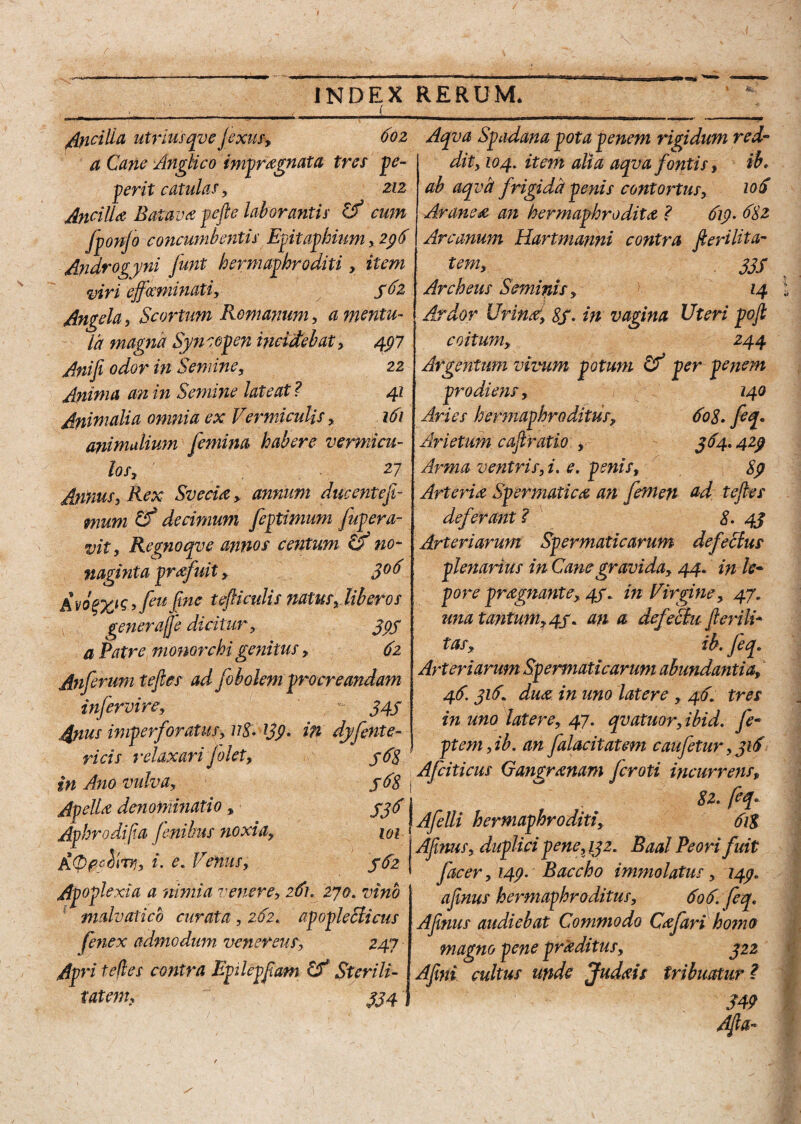 INDEX RERUM.
Ancilla utriusqve sexus, 602
a Cane Anglico imprægnata tres pe-
perit catulas, 212
Ancillæ Batavæ peste laborantis & cum
sponso concumbentis Epitaphium, 296
Androgyni sunt hermaphroditi, item
viri effœminati, 562
Angela, Scortum Romanum, a mentu-
la magna Syncopen incidebat, 497
Anisi odor in Semine, 22
Anima an in Semine lateat? 41
Animalia omnia ex Vermiculis, 161
animalium femina habere vermicu-
los, 27
Annus, Rex Sveciæ, annum ducentesi-
mum & decimum septimum supera-
vit, Regnoqve annos centum & no-
naginta præfuit, 306
Ἄνοςχις, seu sine testiculis natus, liberos
generasse dicitur, 395
a Patre monorchi genitus, 62
Anserum testes ad sobolem procreandam
inservire, 345
Anus imperforatus, 118. 139. in dysente-
ricis relaxari solet, 568
in Ano vulva, 568
Apellæ denominatio, 536
Aphrodisia senibus noxia, 101
Ἀφροδίτη, i. e. Venus, 562
Apoplexia a nimia venere, 261. 270. vino
malvatico curata, 262. apoplecticus
senex admodum venereus, 247
Apri testes contra Epilepsiam & Sterili-
tatem, 334
Aqva Spadana pota penem rigidum red-
dit, 104. item alia aqva fontis, ib.
ab aqva frigida penis contortus, 106
Araneæ an hermaphroditæ? 619. 682
Arcanum Hartmanni contra sterilita-
tem, 335
Archeus Seminis, 14
Ardor Urinæ, 85. in vagina Uteri post
coitum, 244
Argentum vivum potum & per penem
prodiens, 140
Aries hermaphroditus, 608. seq.
Arietum castratio, 364. 429
Arma ventris, i. e. penis, 89
Arteriæ Spermaticæ an semen ad testes
deferant? 8. 43
Arteriarum Spermaticarum defectus
plenarius in Cane gravida, 44. in le-
pore prægnante, 45. in Virgine, 47.
una tantum, 45. an a defectu sterili-
tas, ib. seq.
Arteriarum Spermaticarum abundantia,
46. 316. duæ in uno latere, 46. tres
in uno latere, 47. qvatuor, ibid. se-
ptem, ib. an salacitatem causetur, 316
Asciticus Gangrænam scroti incurrens,
82. seq.
Aselli hermaphroditi, 618
Asinus, duplici pene, 132. Baal Peori fuit
sacer, 149. Baccho immolatus, 149.
asinus hermaphroditus, 606. seq.
Asinus audiebat Commodo Cæsari homo
magno pene præditus, 322
Asini cultus unde Judæis tribuatur?
349
Asta-